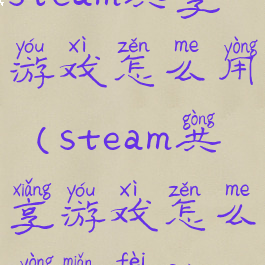 steam共享
yóu xì zěn me yòng
游戏怎么用
gòng
(steam共
xiǎng yóu xì zěn me
享游戏怎么
yòng miǎn fèi